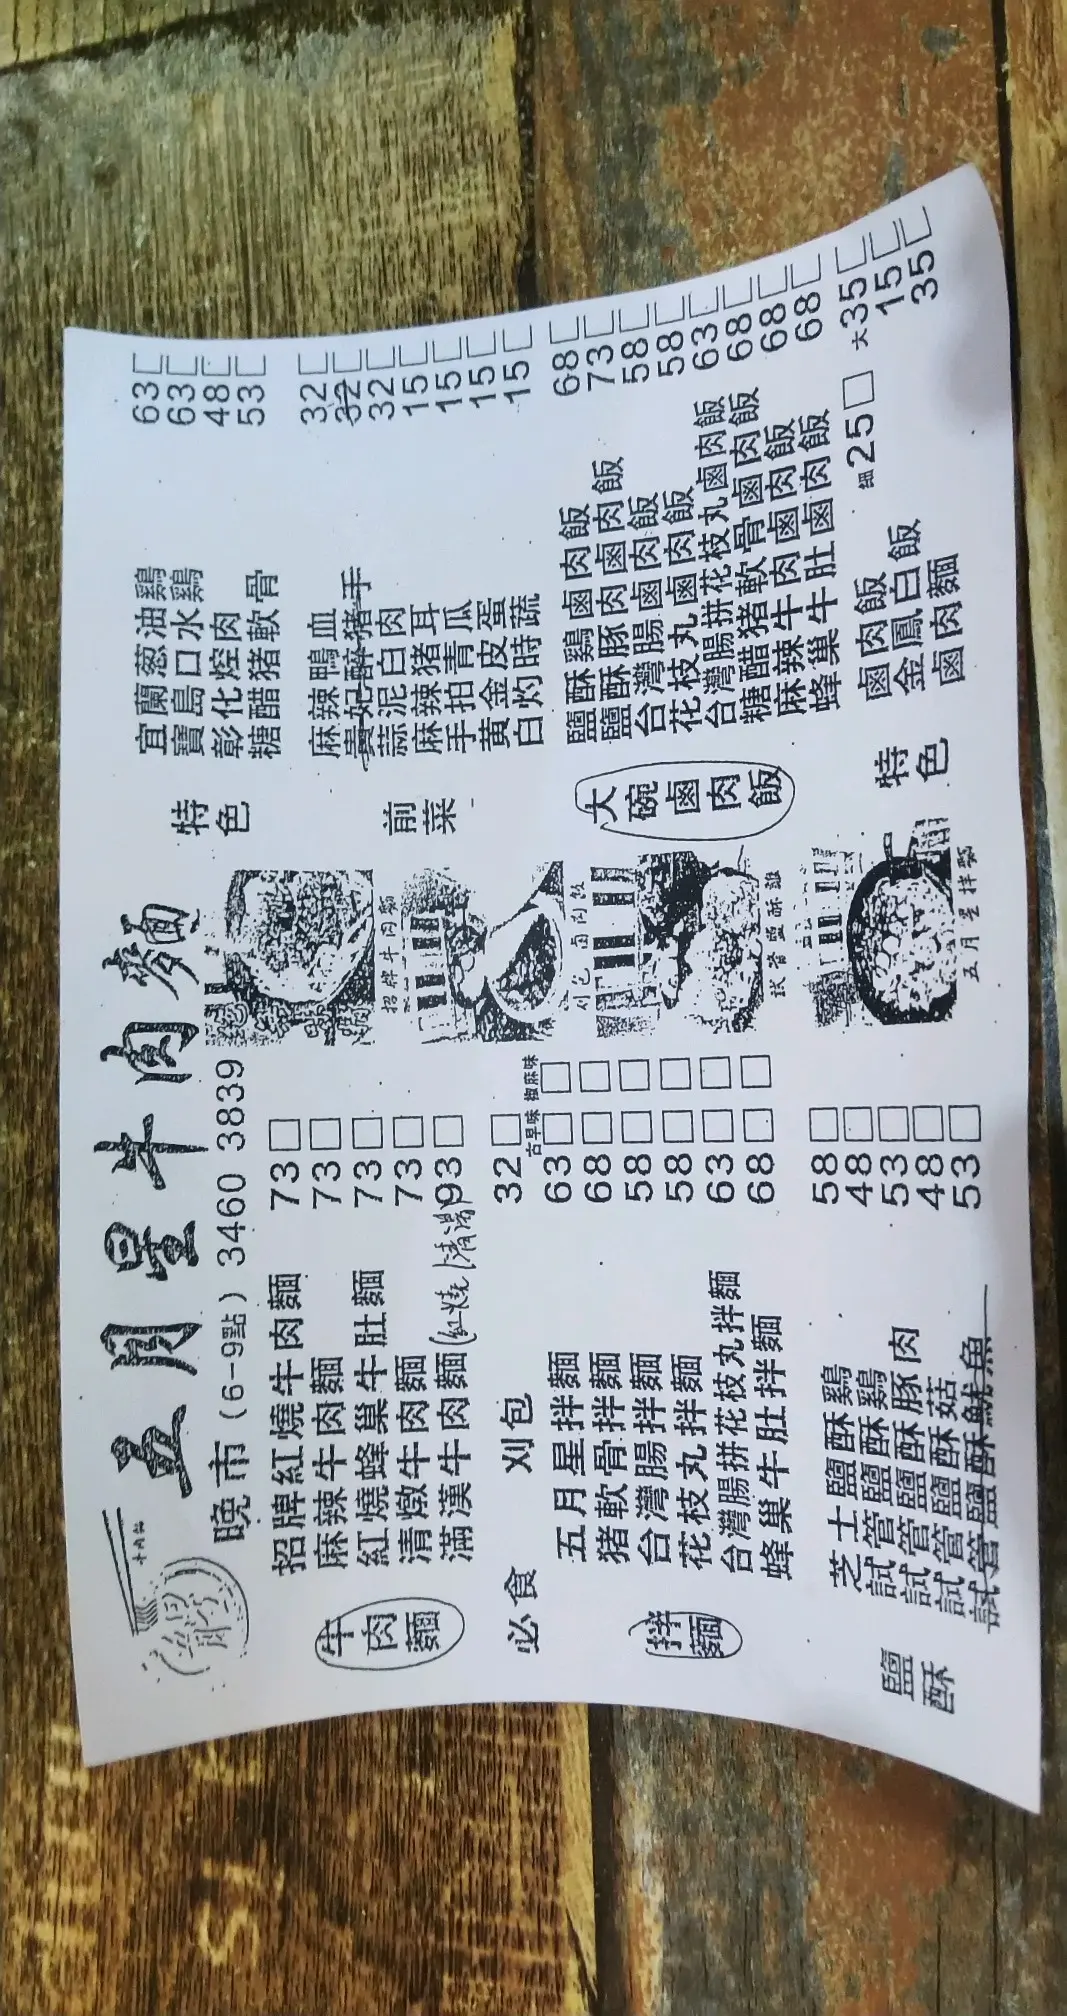 五月星牛肉麵
晚市(6-9點) 3460 3839
牛肉麵
招牌紅燒牛肉麵 73
麻辣牛肉麵 73
紅燒蜂巢牛肚麵 73
清燉牛肉麵 73
滿漢牛肉麵(紅燒/清湯) 93
必食
刈包 32
古早味 椒麻味
拌麵
五月星拌麵 63
猪軟骨拌麵 68
台灣腸拌麵 58
花枝丸拌麵 58
台灣腸拼花枝丸拌麵 63
蜂巢牛肚拌麵 68
鹽酥
芝士鹽酥鷄 58
試管鹽酥鷄 48
試管鹽酥豚肉 53
試管鹽酥菇 48
試管鹽酥魷魚 53
招牌牛肉麵
刈包 卤肉飯
試管盐酥雞
五月星拌麵
特色
宜蘭葱油鷄 63
寶島口水鷄 63
彰化焢肉 48
糖醋猪軟骨 53
前菜
麻辣鴨血 32
貴妃醉猪手 32
蒜泥白肉 32
麻辣猪耳 15
手拍青瓜 15
黄金皮蛋 15
白灼時蔬 15
大碗鹵肉飯
鹽酥鷄鹵肉飯 68
鹽酥豚肉鹵肉飯 73
台灣腸鹵肉飯 58
花枝丸鹵肉飯 58
台灣腸拼花枝丸鹵肉飯 63
糖醋猪軟骨鹵肉飯 68
麻辣牛肉鹵肉飯 68
蜂巢牛肚鹵肉飯 68
特色
鹵肉飯 細25 大35
金鳳白飯 15
鹵肉麵 35